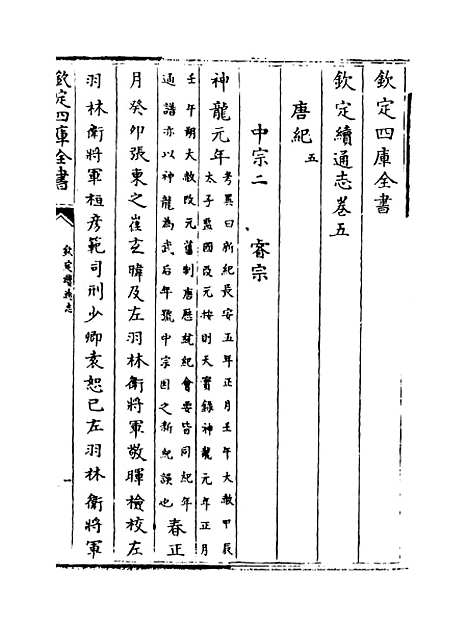 欽定四庫全書
欽定續通志卷五
唐紀五
中宗二　睿宗
神龍元年
考異曰新紀長安五年正月壬午大赦甲辰
太子監國改元按則天實錄神龍元年正月
壬午朔大赦改元舊制唐歷統紀會要皆同紀年
通譜亦以神龍為武后年號中宗因之新紀誤也
春正
月癸卯張柬之崔玄暐及左羽林衛將軍敬暉檢校左
羽林衛將軍桓彥範司刑少卿袁恕己左羽林衛將軍
欽定四庫全書
欽定續通志
一